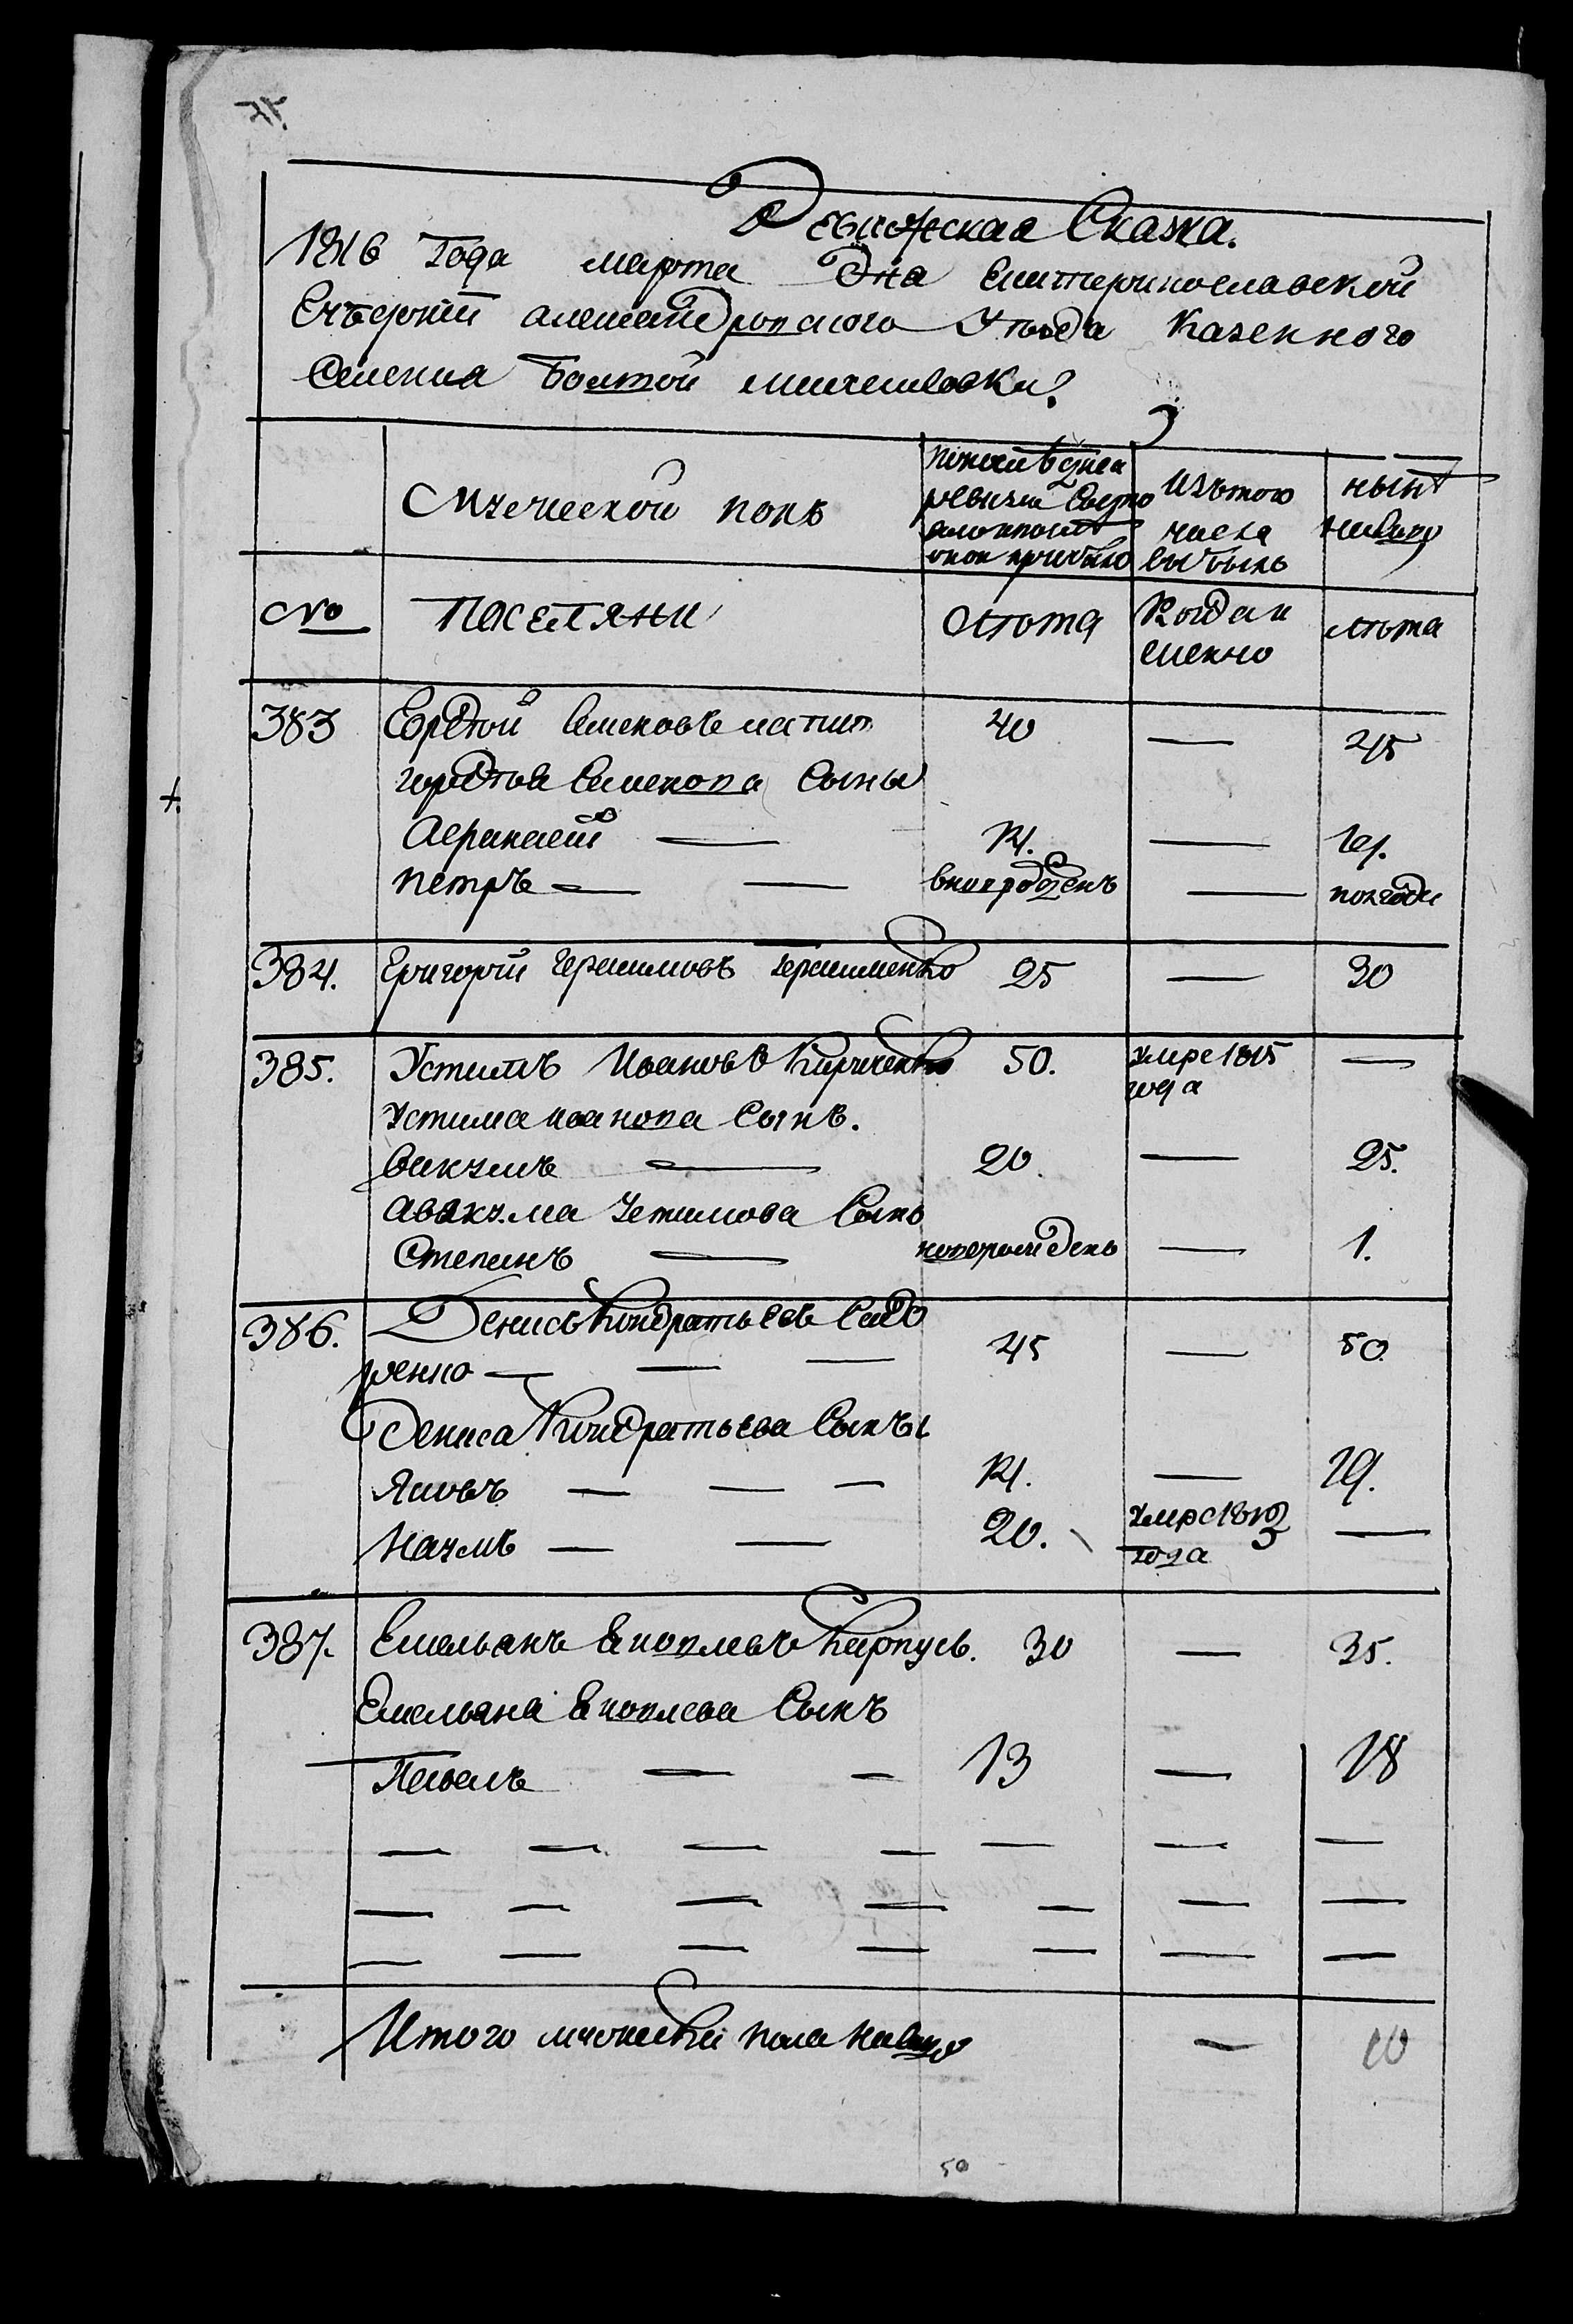 Ревижская Сказка.
1816 Года марта Дня Екатеринославской
Губернии александровского Уезда Казенного
Селения Болшой михаиловки
Мужеской полъ
ревизии Состо
яло и после
оной прибыло
Изътого
числа
выбыло
ныне
налицо
No
поселяни
Лета
Когда и
имянно
лета
383
Семеновъ
40
—
45
Семенова Сыны
—
14.
—
19.
петръ — —
вновърожденъ
—
полгода
384.
Григорий Герасимовъ Герасименко
25
—
30
385.
Устимъ Ивановъ Кириченко
50.
умре 1815
года
—
Устима иванова Сынъ.
вакумъ —
20.
—
25.
авакума Устимова Сынъ
Степанъ —
новорожденъ
—
1.
386.
Денисъ Кондратьевъ Сидо
ренко — — —
45
—
50.
Дениса Кондратьева Сынъы
Яковъ — — —
14.
—
19.
Наумъ — —
20.
умре 1813
года
—
387.
Емельянъ Яковлевъ Карпусь.
30
—
35.
Емельяна Яковлева Сынъ
Павелъ — —
13
—
18
— — — — — — —
— — — — — — —
— — — — — — —
Итого мужеска пола налицо
—
10
50